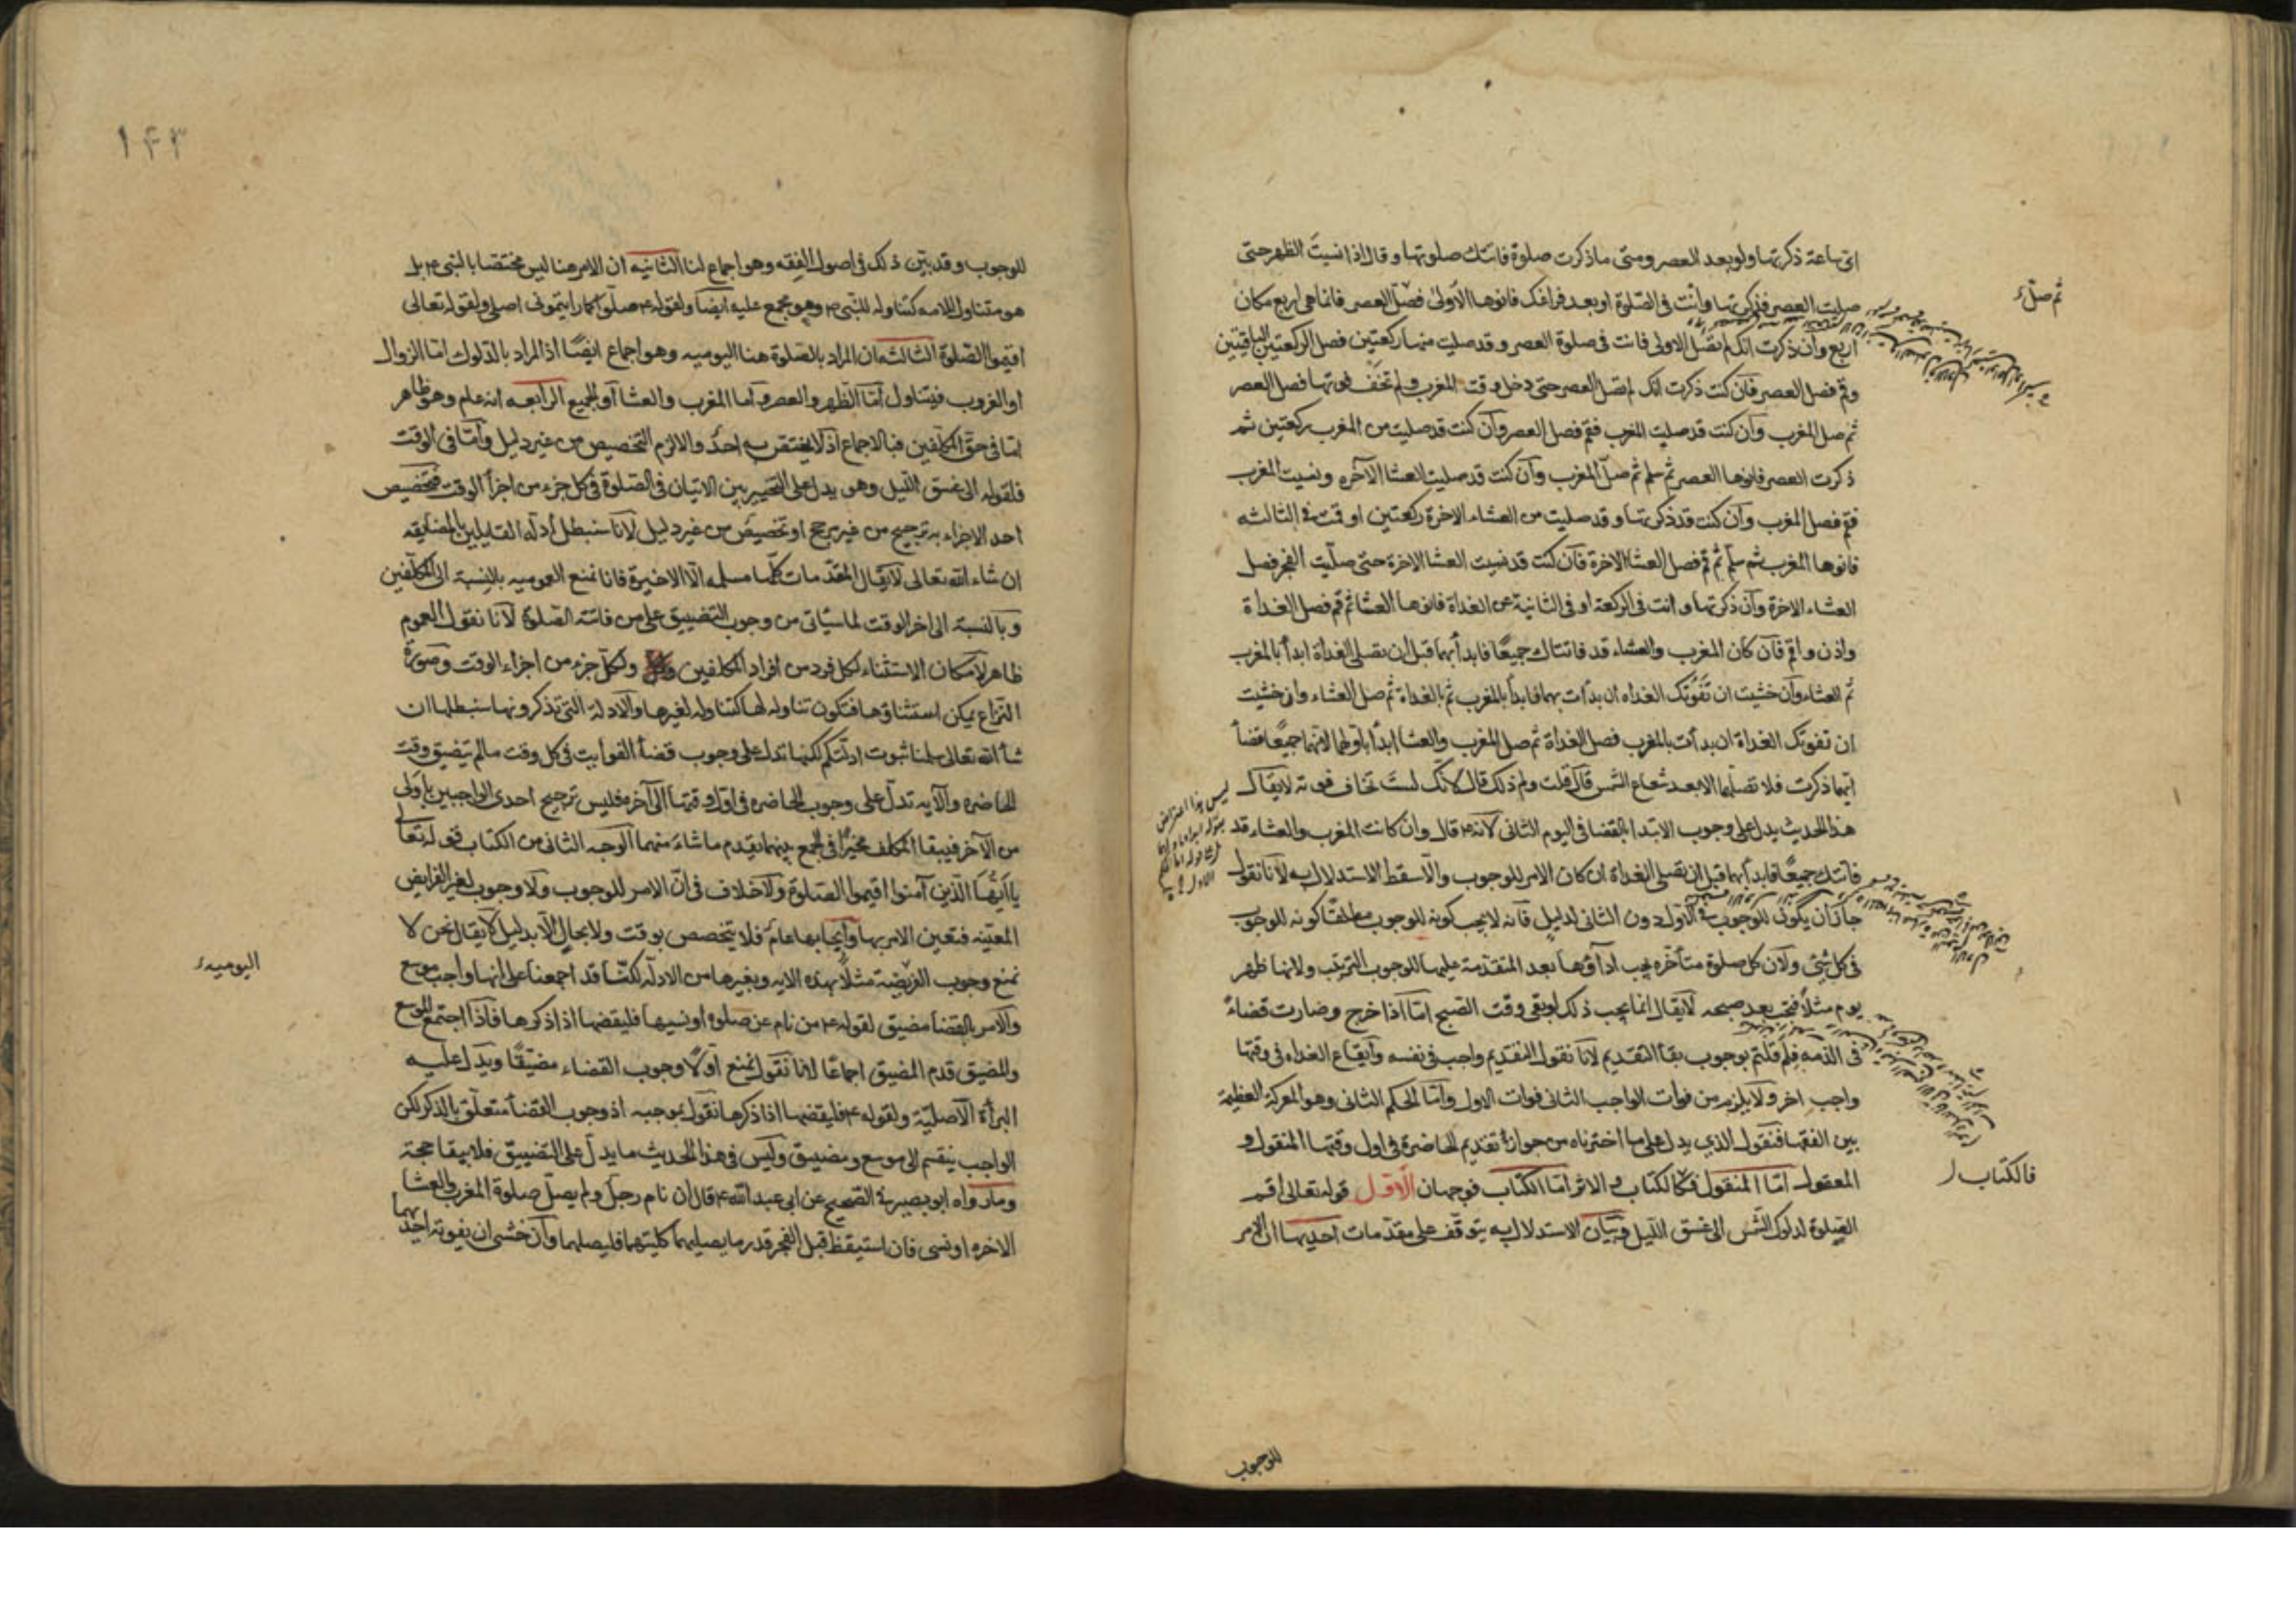 اى ساعة ذكرتها ولو بعد العصر ومتى ما ذكرت صلوة فاتتك صلوتها وقال اذا نسيت الظهر حتى
صليت العصر فذكرتها وانت فى الصلوة او بعد فراغك فانوها الأولى فصل العصر فانما هى اربع مكان
ثم صل
اربع وان ذكرت انك لم تصل الاولى فانت فى صلوة العصر وقد صليت منها ركعتين فصل الركعتين الباقيتين
وقم فصل العصر فان كنت ذكرت انك لم تصل العصر حتى دخل وقت المغرب ولم تخف فوتها فصل العصر
ثم صل المغرب وان كنت قد صليت المغرب فقم فصل العصر وان كنت قد صليت من المغرب ركعتين ثم
ذكرت العصر فانوها العصر ثم سلم ثم صل المغرب وان كنت قد صليت العشا الآخره ونسيت المغرب
فقم فصل المغرب وان كنت قد ذكرتها وقد صليت من العشاء الاخرة ركعتين او قمت فى الثالثه
فانوها المغرب ثم سلم ثم قم فصل العشا الاخرة فان كنت قد نسيت العشا الاخرة حتى صليت الفجر فصل
العشاء الاخرة وان ذكرتها وانت فى الركعة او فى الثانية من الغداة فانوها العشا ثم قم فصل الغداة
واذن واقم فان كان المغرب والعشاء قد فاتتاك جميعًا فابدأ بهما قبل ان تصلى الغداة ابدأ بالمغرب
ثم العشاء وان خشيت ان تفوتك الغداه ان بدات بهما فابدأ بالمغرب ثم بالغداة ثم صل العشاء وان خشيت
ان تفوتك الغداة ان بدأت بالمغرب فصل الغداة ثم صل المغرب والعشا ابدأ باولهما لانهما جميعًا قضأ
ايهما ذكرت فلا تصلهما الا بعد شعاع الشمس قال قلت ولم ذلك قال لانك لست تخاف فوته لا يقال
هذا الحديث يدل على وجوب الابتدا بالقضا فى اليوم الثانى لانه ع قال وان كانت المغرب والعشاء قد
فاتتك جميعًا فابدأ بهما قبل ان تصلى الغداة ان كان الامر للوجوب والا سقط الاستدلال به لانا نقول
جاز ان يكون للوجوب فى الاول دون الثانى لدليل فانه لا يجب كونه للوجوب مطلقًا كونه للوجوب
فى كل شئ ولان كل صلوة متأخره يجب اداؤها بعد المتقدمة عليها للوجوب الترتيب ولانها ظهر
يوم مثلا فتجب بعد صبحه لا يقال انما يجب ذلك لو بقى وقت الصبح اما اذا خرج وصارت قضاء
فى الذمه فلم قلتم بوجوب بقا التقديم لانا نقول التقديم واجب فى نفسه وايقاع الغداه فى وقتها
واجب اخر ولا يلزم من فوات الواجب الثانى فوات الاول واما الحكم الثانى وهو المعركة العظيمة
بين الفقها فنقول الذى يدل على ما اخترناه من جواز تقديم الحاضرة فى اول وقتها المنقول و
المعقول اما المنقول فكالكتاب والاثر اما الكتاب فوجهان الاول قوله تعالى اقم
فالكتاب
الصلوة لدلوك الشمس الى غسق الليل وبيان الاستدلال به يتوقف على مقدمات احديها ان الامر
للوجوب
١٤٣
للوجوب وقد بين ذلك فى اصول الفقه وهو اجماع لنا الثانيه ان الامر هنا ليس مختصا بالنبى ع بل
هو متناول للامه كتناوله للنبى ع وهو مجمع عليه ايضا ولقوله ع صلوا كما رايتمونى اصلى ولقوله تعالى
اقيموا الصلوة الثالثه ان المراد بالصلوة هنا اليوميه وهو اجماع ايضًا اذ المراد بالدلوك اما الزوال
او الغروب فيتناول اما الظهر والعصر واما المغرب والعشا او الجميع الرابعه انه عام وهو ظاهر
اما فى حق المكلفين فبالاجماع اذ لا يختص به احد والا لزم التخصيص من غير دليل واما فى الوقت
فلقوله الى غسق الليل وهو يدل على التخيير بين الاتيان فى الصلوة فى كل جزء من اجزأ الوقت فتخصيص
احد الاجزاء به ترجيح من غير مرجح او تخصيص من غير دليل لانا سنبطل أدله القايلين بالمضايقه
ان شاء الله تعالى لا يقال المقدمات كلها مسلمه الا الاخيرة فانا نمنع العموميه بالنسبة الى المكلفين
وبالنسبة الى اخر الوقت لما سيأتى من وجوب التضييق على من فاتته الصلوة لانا نقول العموم
ظاهر لامكان الاستثناء لكل فرد من افراد المكلفين ولكل جزء من اجزاء الوقت وصورة
النزاع يمكن استثناؤها فتكون تناوله لها كتناوله لغيرها والادلة التى تذكرونها سنبطلها ان
شأ الله تعالى سلمنا ثبوت ادلتكم لكنها تدل على وجوب قضأ الفوايت فى كل وقت ما لم يتضيق وقت
الحاضره والآيه تدل على وجوب الحاضره فى اول وقتها الى آخره فليس ترجيح احدى الواجبين باولى
من الآخر فيبقا المكلف مخيرًا فى الجمع بينهما يقدم ما شاء منهما الوجه الثانى من الكتاب قوله تعالى
يا ايها الذين آمنوا اقيموا الصلوة ولا خلاف فى ان الامر للوجوب ولا وجوب لغير الفرايض
المعينه فتعين الامر بها وايجابها عام فلا يتخصص بوقت ولا بحال الا بدليل لا يقال نحن لا
اليوميه
نمنع وجوب الفريضة مثلًا بهذه الايه وبغيرها من الادله لكننا قد اجمعنا على انها واجب موسع
والامر بالقضا مضيق لقوله ع من نام عن صلوه او نسيها فليقضها اذا ذكرها فاذا اجتمع الموسع
والمضيق قدم المضيق اجماعًا لانا نقول نمنع اولًا وجوب القضاء مضيقًا ويدل عليه
البرأة الاصليّة ولقوله ع فليقضها اذا ذكرها نقول بموجبه اذ وجوب القضأ متعلق بالذكر لكن
الواجب ينقسم الى موسع ومضيق وليس فى هذا الحديث ما يدل على التضييق فلا يبقا حجة
وما رواه ابو بصير فى الصحيح عن ابى عبد الله ع قال ان نام رجل ولم يصل صلوة المغرب والعشا
الاخره او نسى فان استيقظ قبل الفجر قدر ما يصليهما كلتيهما فليصلهما وان خشى ان يفوته احديهما